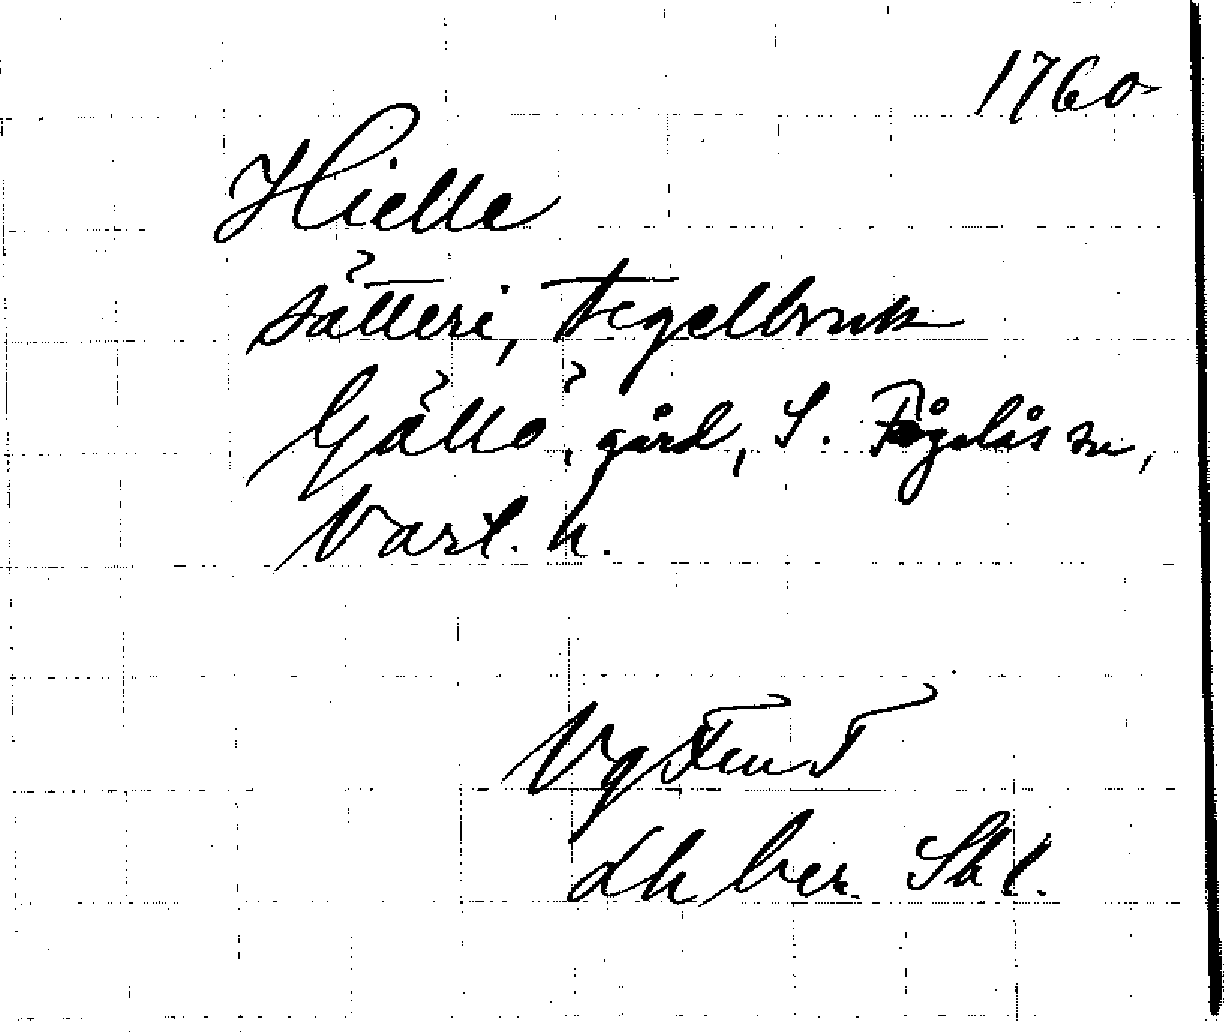 1760
Hielle
sätteri, Tegelbruk
Gällö, gård, S. Fågelås sn,
Vart. h.
Vg
lh ber. Skl.